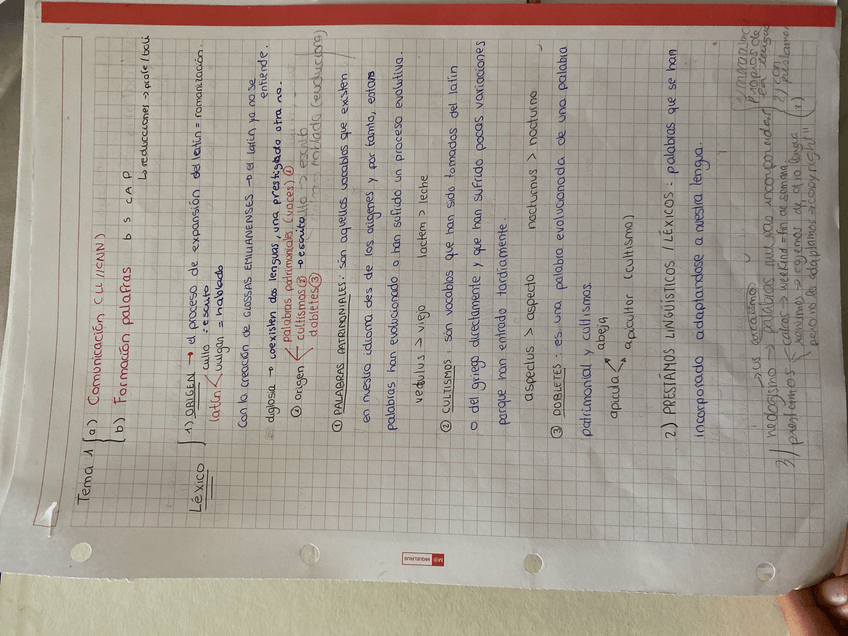 Tema 1 a) Comunicación (CLI/CNN)
b) Formación palabras b s C A P
↳ reducciones → profe/boli
Léxico
1) ORIGEN → el proceso de expansión del latín = romanización.
latín culto: escrito
vulgar = hablado
Con la creación de GLOSSAS EMILIANENSES → el latín ya no se entiende.
diglosia → coexisten dos lenguas, una prestigiada otra no.
origen palabras patrimoniales (voces) ①
cultismos ② → escrito
dobletes ③
① PALABRAS PATRIMONIALES: són aquellos vocablos que existen
en nuestro idioma des de los orígenes y por tanto, estans
palabras han evolucionado o han sufrido un proceso evolutivo.
vetulus > viejo lactem > leche
② CULTISMOS: són vocablos que han sido tomados del latín
o del griego directamente y que han sufrido pocas variaciones
porque han entrado tardíamente.
aspectus > aspecto nocturnus > nocturno
③ DOBLETES: es una palabra evolucionada de una palabra
patrimonial y cultismos.
apicula abeja
apicultor (cultismo)
2) PRESTÁMOS LINGÜÍSTICOS / LÉXICOS: palabras que se han
incorporado adaptandose a nuestra lengua.
palabras que van incorporadas
weekend = fin de semana
3) prestamos
de otra lengua
pero no los adaptamos → "copyright"
MIQUELRIUS